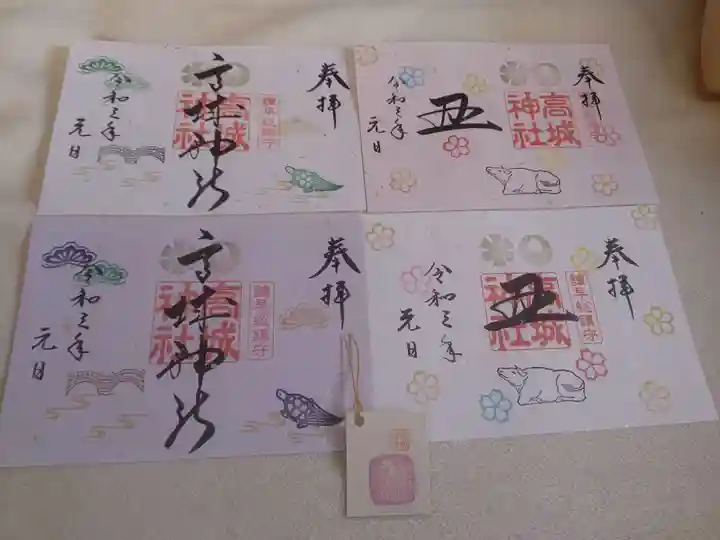 奉拝
諫早総鎮守
高城神社
高城神社
令和三年
元日
奉拝
高城神社
丑
令和三年
元日
奉拝
諫早総鎮守
高城神社
高城神社
令和三年
元日
奉拝
諫早総鎮守
高城神社
丑
令和三年
元日